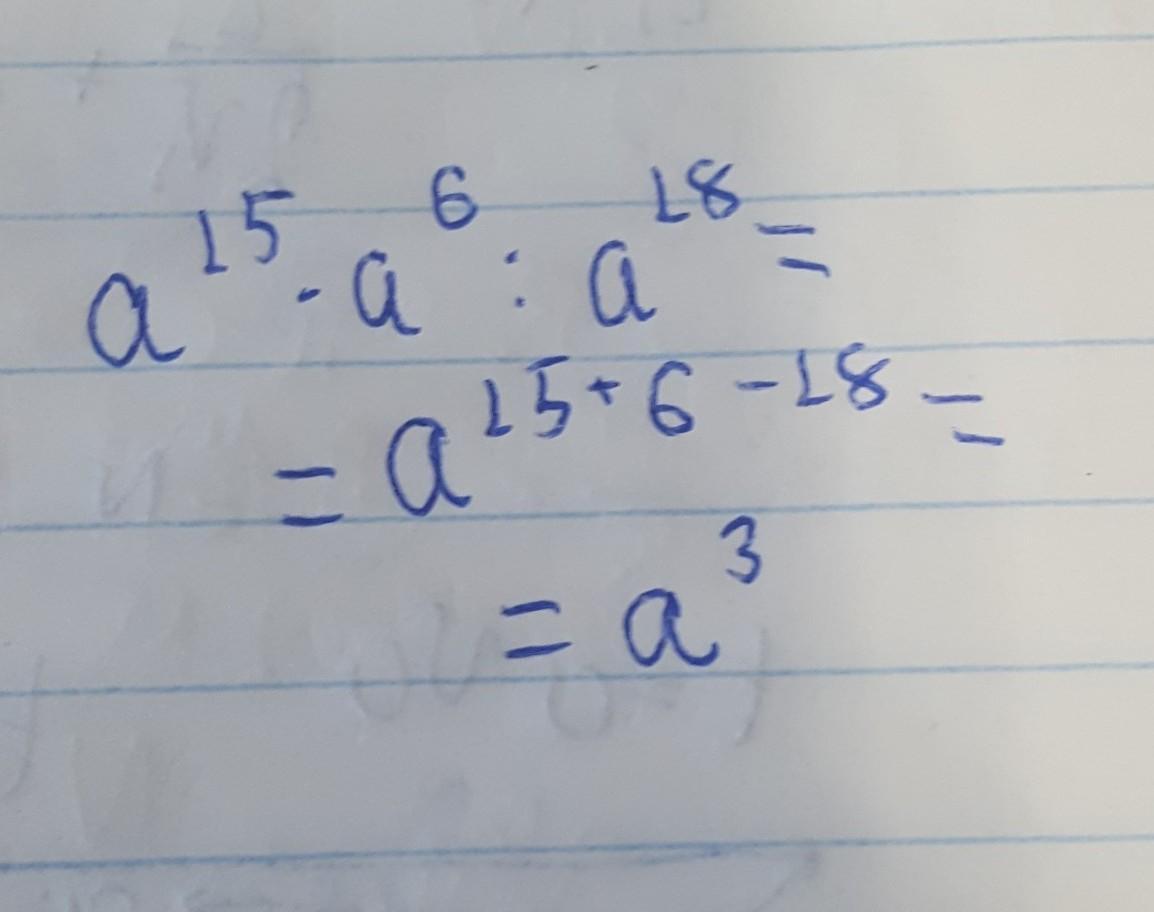 a¹⁵ · a⁶ : a¹⁸ =
= a¹⁵⁺⁶⁻¹⁸ =
= a³